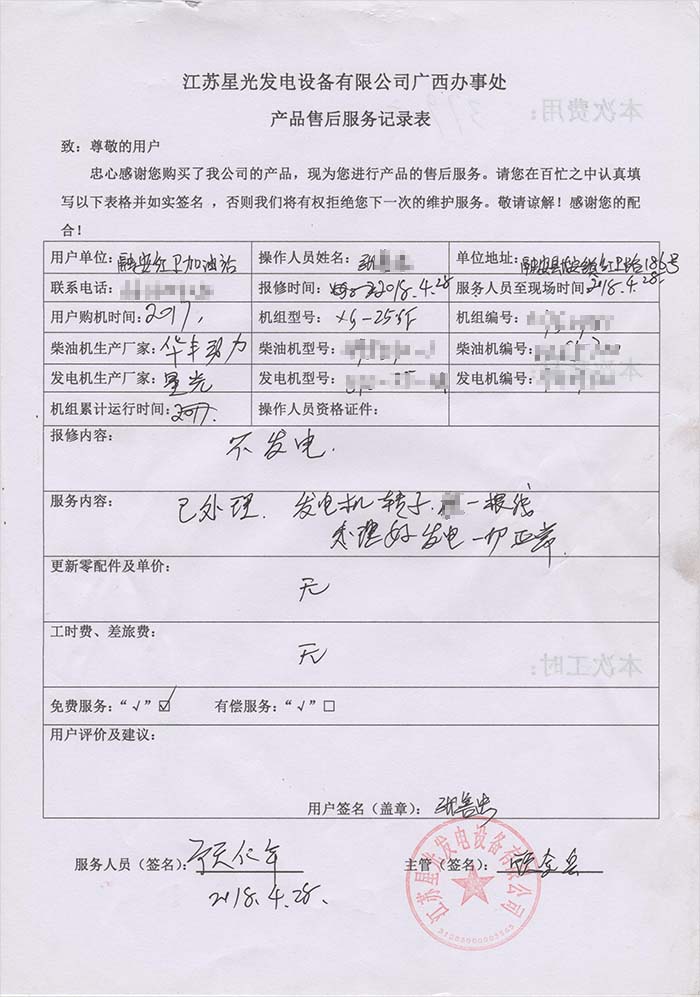 江苏星光发电设备有限公司广西办事处
产品售后服务记录表
本次费用：
致：尊敬的用户
忠心感谢您购买了我公司的产品，现为您进行产品的售后服务。请您在百忙之中认真填
写以下表格并如实签名，否则我们将有权拒绝您下一次的维护服务。敬请谅解！感谢您的配
合！
用户单位：融安红卫加油站 操作人员姓名： 单位地址：融安县长安镇红卫路186号
联系电话： 报修时间：2018.4.28 服务人员至现场时间2018.4.28.
用户购机时间：2017. 机组型号：XG-25GF 机组编号：
柴油机生产厂家：华丰动力 柴油机型号： 柴油机编号：
发电机生产厂家：星光 发电机型号： 发电机编号：
机组累计运行时间：2017. 操作人员资格证件：
报修内容：
不发电.
服务内容：
已处理. 发电机转子 一根线
处理好发电一切正常.
更新零配件及单价：
无
工时费、差旅费：
无
本次工时：
免费服务：“√”☑ 有偿服务：“√”□
用户评价及建议：
用户签名（盖章）：
服务人员（签名）： 主管（签名）：
2018.4.28.
江苏星光发电设备有限公司